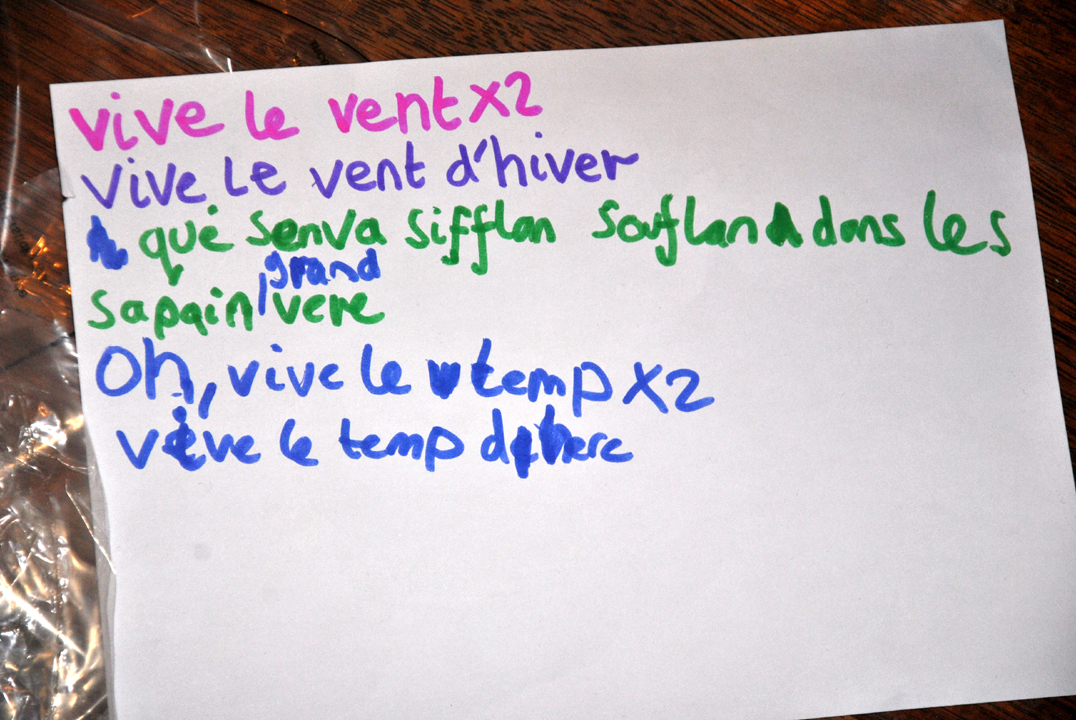 vive le vent x2
vive le vent d'hiver
qui senva sifflan souflan dans les
grand
sapain vere
Oh, vive le temp x2
vive le temp